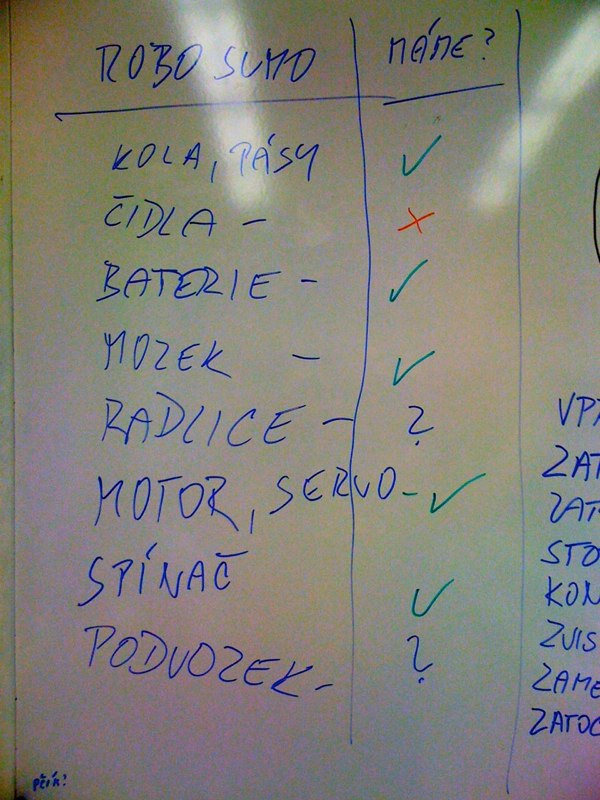 ROBO SUMO MÁME?
KOLA, PÁSY ✓
ČIDLA – ×
BATERIE – ✓
MOZEK – ✓
RADLICE – ?
MOTOR, SERVO – ✓
SPÍNAČ ✓
PODVOZEK – ?
ZAT
ZAT
STO
KON
ZVIS
ZAME
ZATOC